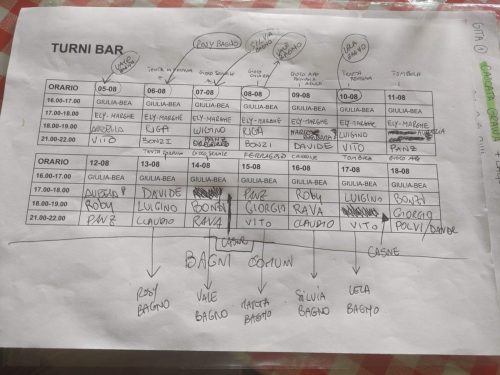 ROSY BAGNO
SILVIA BAGNO
VALE BAGNO
LELA BAGNO
VALE BAGNO
GITA
TURNI BAR
TOMBOLA
ORARIO 05-08 06-08 07-08 08-08 09-08 10-08 11-08
16.00-17.00 GIULIA-BEA GIULIA-BEA GIULIA-BEA GIULIA-BEA GIULIA-BEA GIULIA-BEA GIULIA-BEA
17.00-18.00 ELY-MARGHE ELY-MARGHE ELY-MARGHE ELY-MARGHE ELY-MARGHE ELY-MARGHE ELY-MARGHE
18.00-19.00 RIGA LUIGINO RIGA LUIGINO
21.00-22.00 VITO BONZI BONZI DAVIDE PANZ
FERRAGOSTO TOMBOLA
ORARIO 12-08 13-08 14-08 15-08 16-08 17-08 18-08
16.00-17.00 GIULIA-BEA GIULIA-BEA GIULIA-BEA GIULIA-BEA GIULIA-BEA GIULIA-BEA GIULIA-BEA
17.00-18.00 DAVIDE PANZ ROBY LUIGINO BONZI
18.00-19.00 ROBY LUIGINO BONZI GIORGIO RAVA GIORGIO
21.00-22.00 PANZ CLAUDIO RAVA VITO CLAUDIO VITO POLVI/DAVIDE
CASNE
CASNE
BAGNI COMUNI
ROSY BAGNO
VALE BAGNO
BAGNO
SILVIA BAGNO
LELA BAGNO